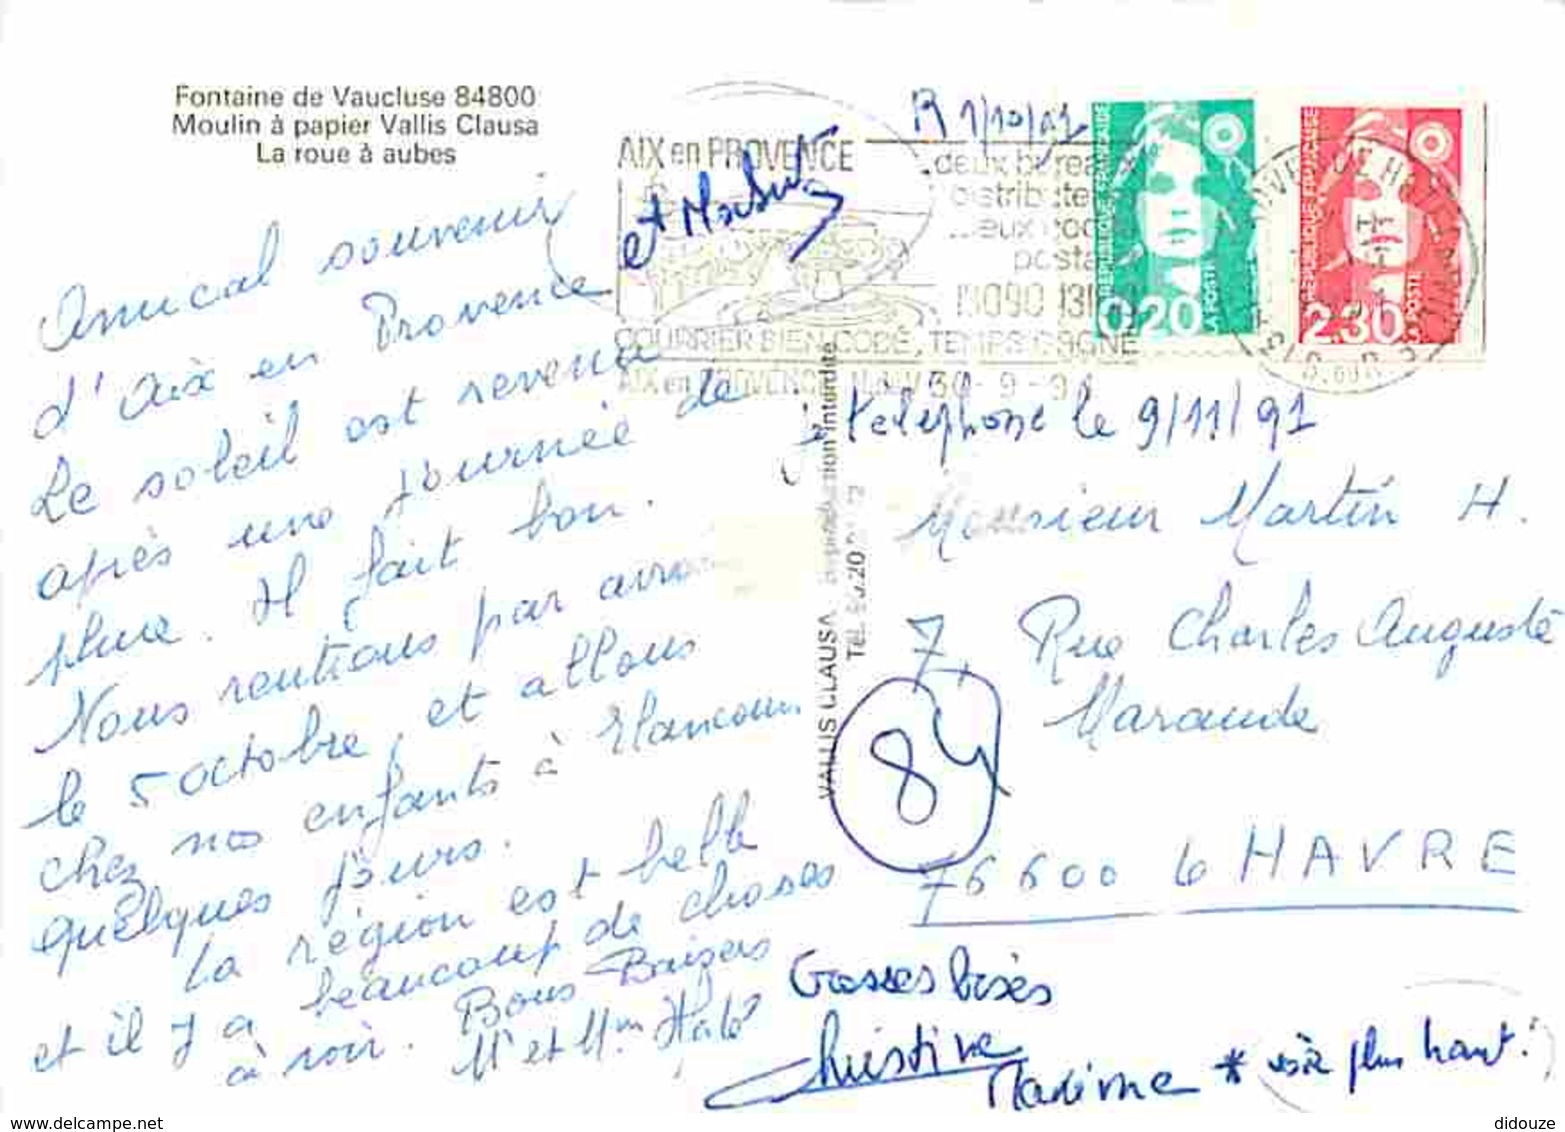 Fontaine de Vaucluse 84800
Moulin à papier Vallis Clausa
La roue à aubes
AIX en PROVENCE
deux burea
distribute
eux cod
posta
13090 131
COURRIER BIEN CODÉ, TEMPS GAGNÉ
AIX en PROVENCE 30-9-91
R 1/10/91
RÉPUBLIQUE FRANÇAISE
0,20
LA POSTE
RÉPUBLIQUE FRANÇAISE
2,30
LA POSTE
et
Amical souvenir
d'Aix en Provence
Le soleil est revenu
après une journée de
pluie. Il fait bon.
Nous rentrons par
le 5 octobre, et allons
chez nos enfants à Elancourt
quelques jours.
La région est belle
et il y a beaucoup de choses
à voir. Bons Baisers
Mr et Mme
VALLIS CLAUSA Reproduction interdite
Tél. 90.20
téléphone le 9/11/91
Monsieur Martin H.
7, Rue Charles Auguste
Marande
84
76600 le HAVRE
Grosses bises
Christine
Maxime * voir plus haut!
didouze